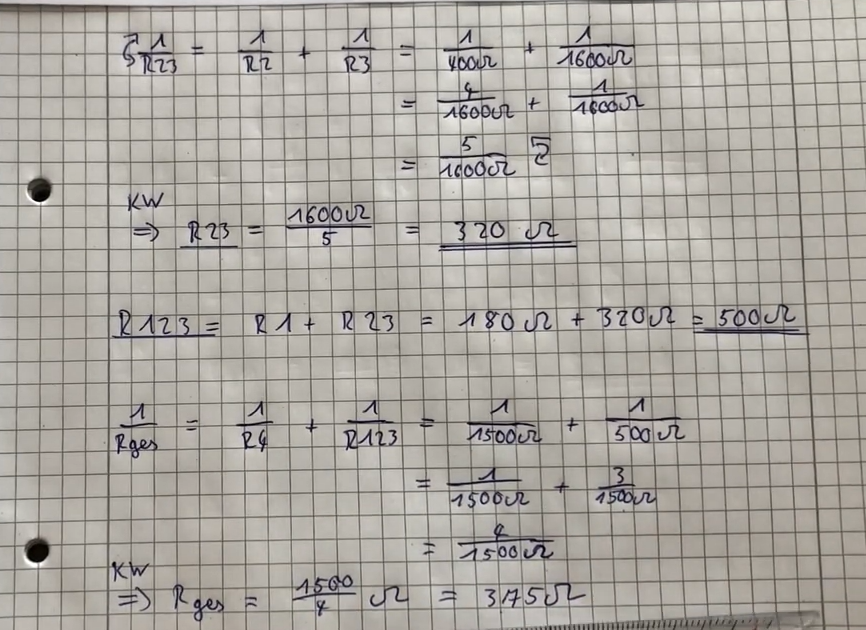 1/R23 = 1/R2 + 1/R3 = 1/400Ω + 1/1600Ω
= 4/1600Ω + 1/1600Ω
= 5/1600Ω
KW
⇒ R23 = 1600Ω/5 = 320 Ω
R123 = R1 + R23 = 180Ω + 320Ω = 500Ω
1/Rges = 1/R4 + 1/R123 = 1/1500Ω + 1/500Ω
= 1/1500Ω + 3/1500Ω
= 4/1500Ω
KW
⇒ Rges = 1500/4 Ω = 375Ω